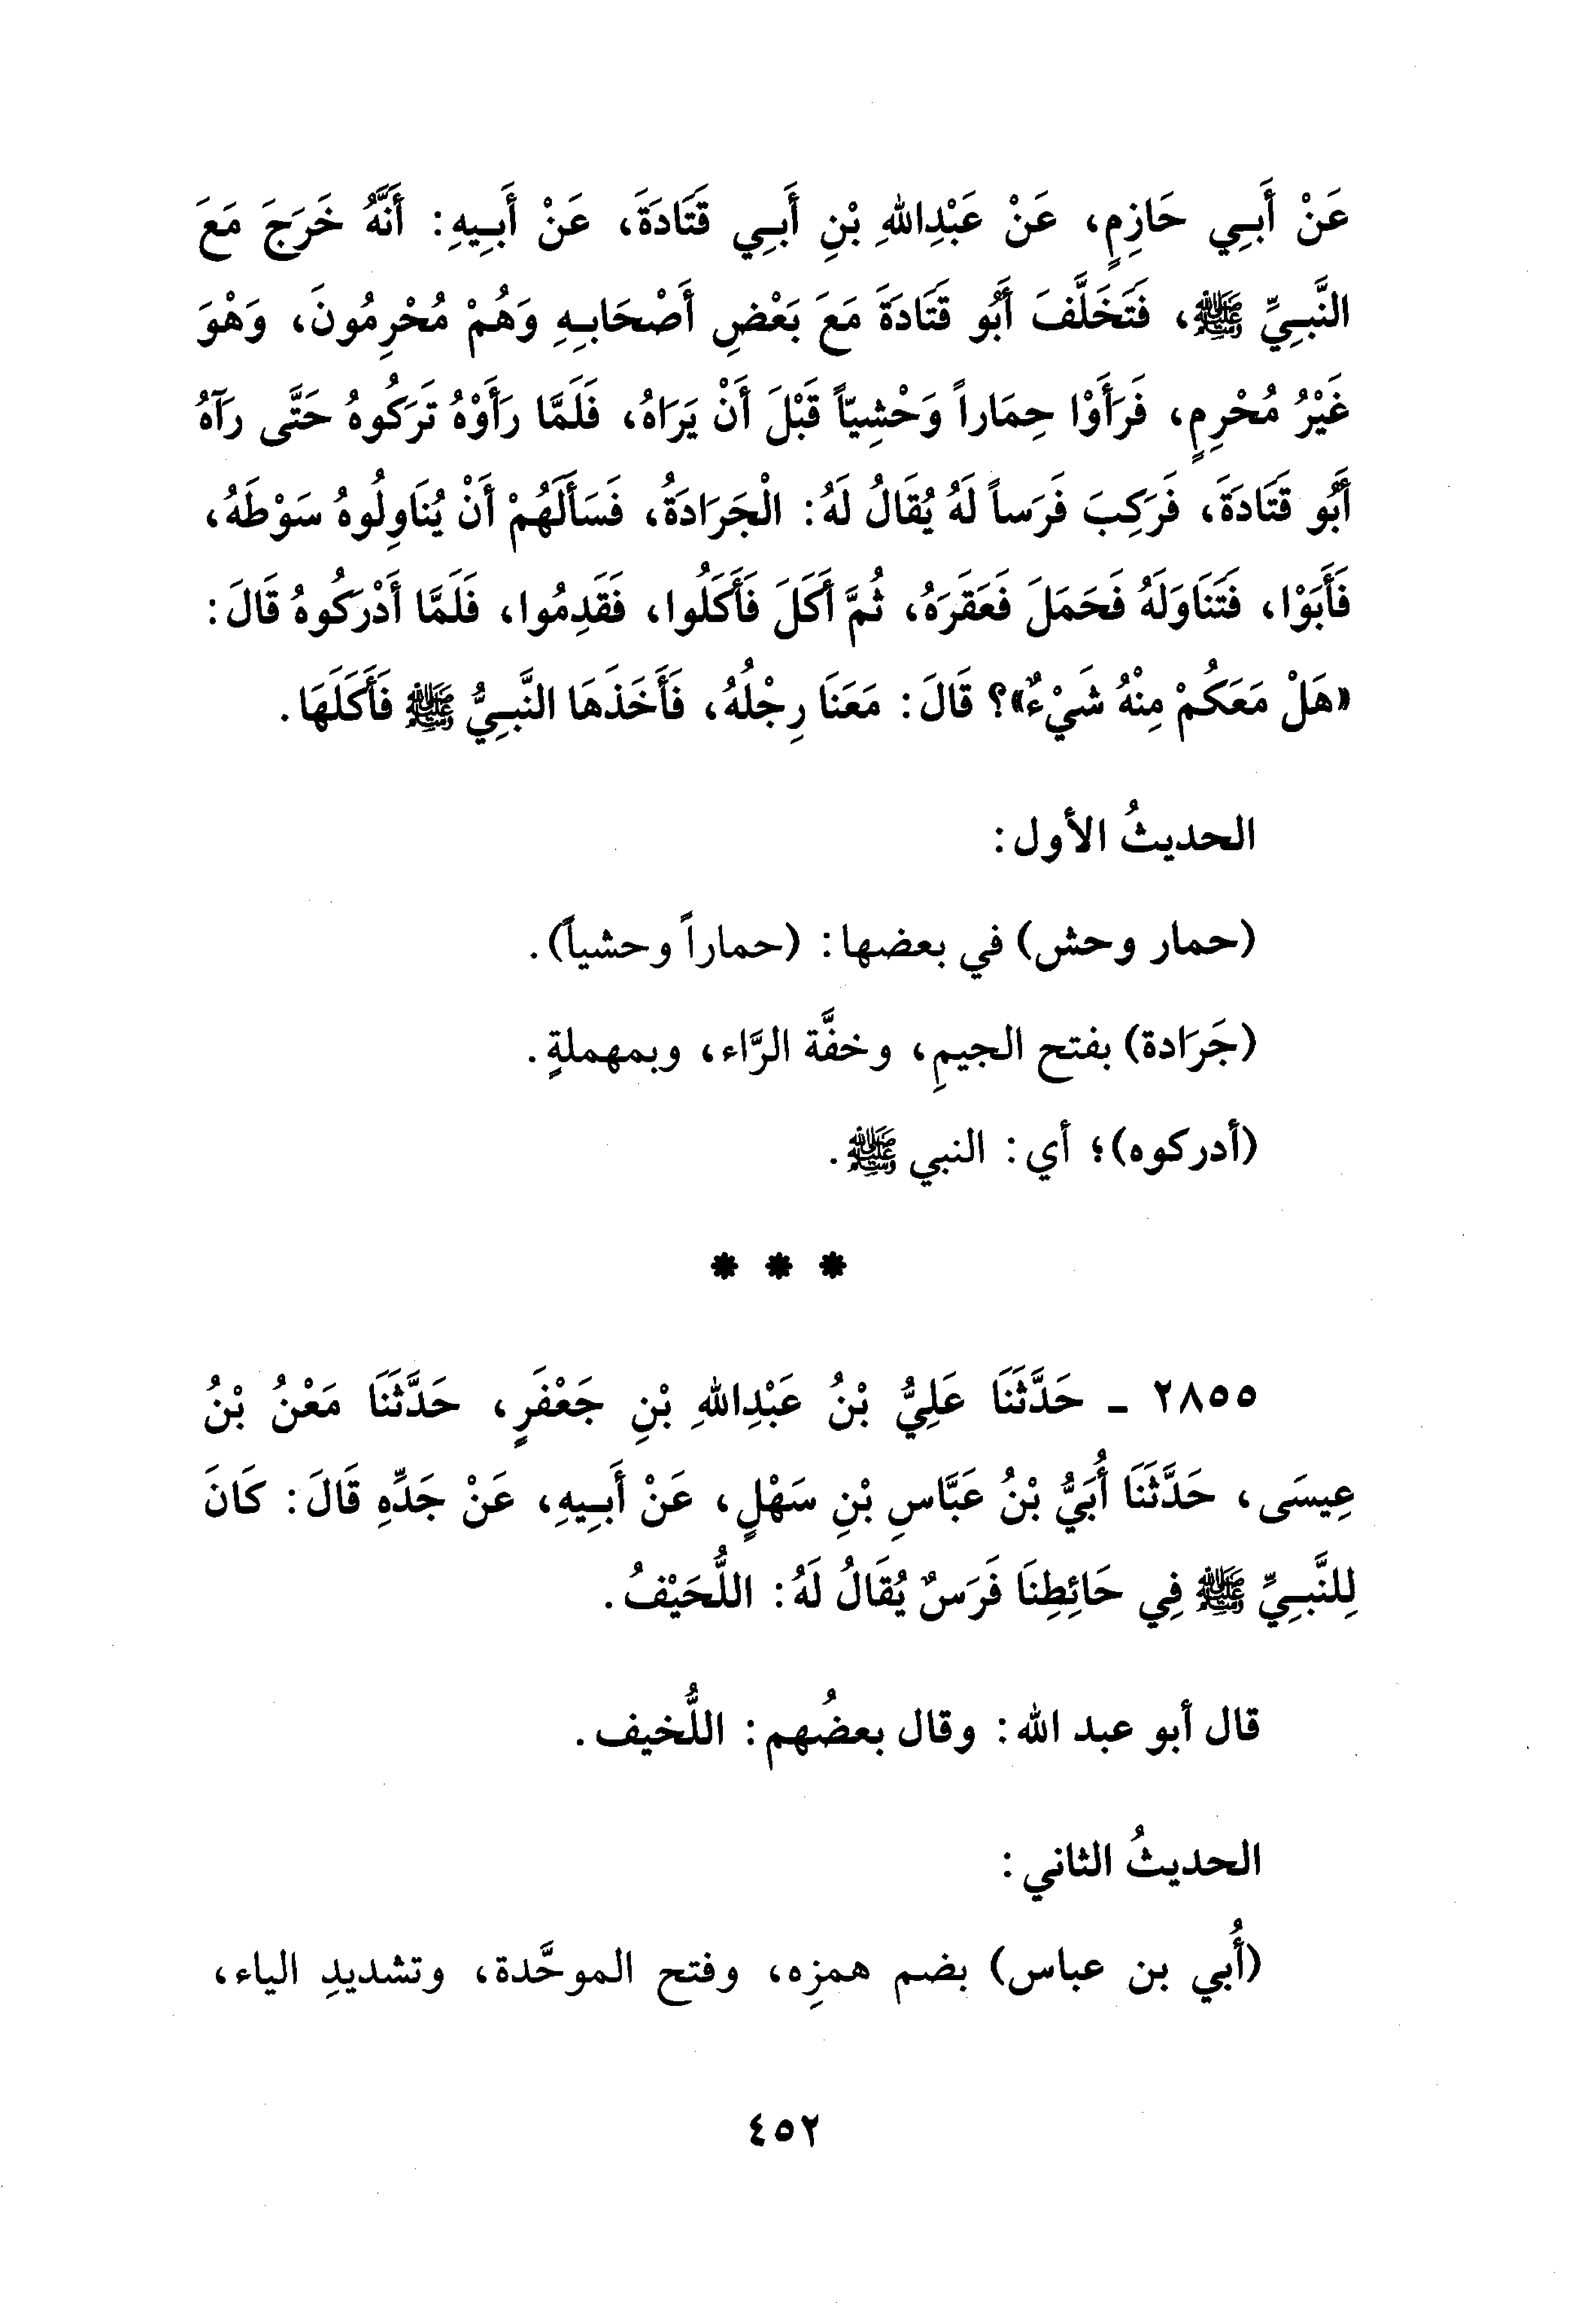 عَنْ أَبِي حَازِمٍ، عَنْ عَبْدِاللهِ بْنِ أَبِي قَتَادَةَ، عَنْ أَبِيهِ: أَنَّهُ خَرَجَ مَعَ
النَّبِيِّ ﷺ، فَتَخَلَّفَ أَبُو قَتَادَةَ مَعَ بَعْضِ أَصْحَابِهِ وَهُمْ مُحْرِمُونَ، وَهْوَ
غَيْرُ مُحْرِمٍ، فَرَأَوْا حِمَاراً وَحْشِيّاً قَبْلَ أَنْ يَرَاهُ، فَلَمَّا رَأَوْهُ تَرَكُوهُ حَتَّى رَآهُ
أَبُو قَتَادَةَ، فَرَكِبَ فَرَساً لَهُ يُقَالُ لَهُ: الْجَرَادَةُ، فَسَأَلَهُمْ أَنْ يُنَاوِلُوهُ سَوْطَهُ،
فَأَبَوْا، فَتَنَاوَلَهُ فَحَمَلَ فَعَقَرَهُ، ثُمَّ أَكَلَ فَأَكَلُوا، فَقَدِمُوا، فَلَمَّا أَدْرَكُوهُ قَالَ:
«هَلْ مَعَكُمْ مِنْهُ شَيْءٌ»؟ قَالَ: مَعَنَا رِجْلُهُ، فَأَخَذَهَا النَّبِيُّ ﷺ فَأَكَلَهَا.
الحديثُ الأول:
(حمار وحش) في بعضها: (حماراً وحشياً).
(جَرَادة) بفتح الجيمِ، وخفَّة الرَّاء، وبمهملةٍ.
(أدركوه)؛ أي: النبي ﷺ.
* * *
٢٨٥٥ - حَدَّثَنَا عَلِيُّ بْنُ عَبْدِاللهِ بْنِ جَعْفَرٍ، حَدَّثَنَا مَعْنُ بْنُ
عِيسَى، حَدَّثَنَا أُبَيُّ بْنُ عَبَّاسِ بْنِ سَهْلٍ، عَنْ أَبِيهِ، عَنْ جَدِّهِ قَالَ: كَانَ
لِلنَّبِيِّ ﷺ فِي حَائِطِنَا فَرَسٌ يُقَالُ لَهُ: اللُّحَيْفُ.
قال أبو عبد الله: وقال بعضُهم: اللُّخيف.
الحديثُ الثاني:
(أُبي بن عباس) بضم همزِه، وفتح الموحَّدة، وتشديدِ الياء،
٤٥٢